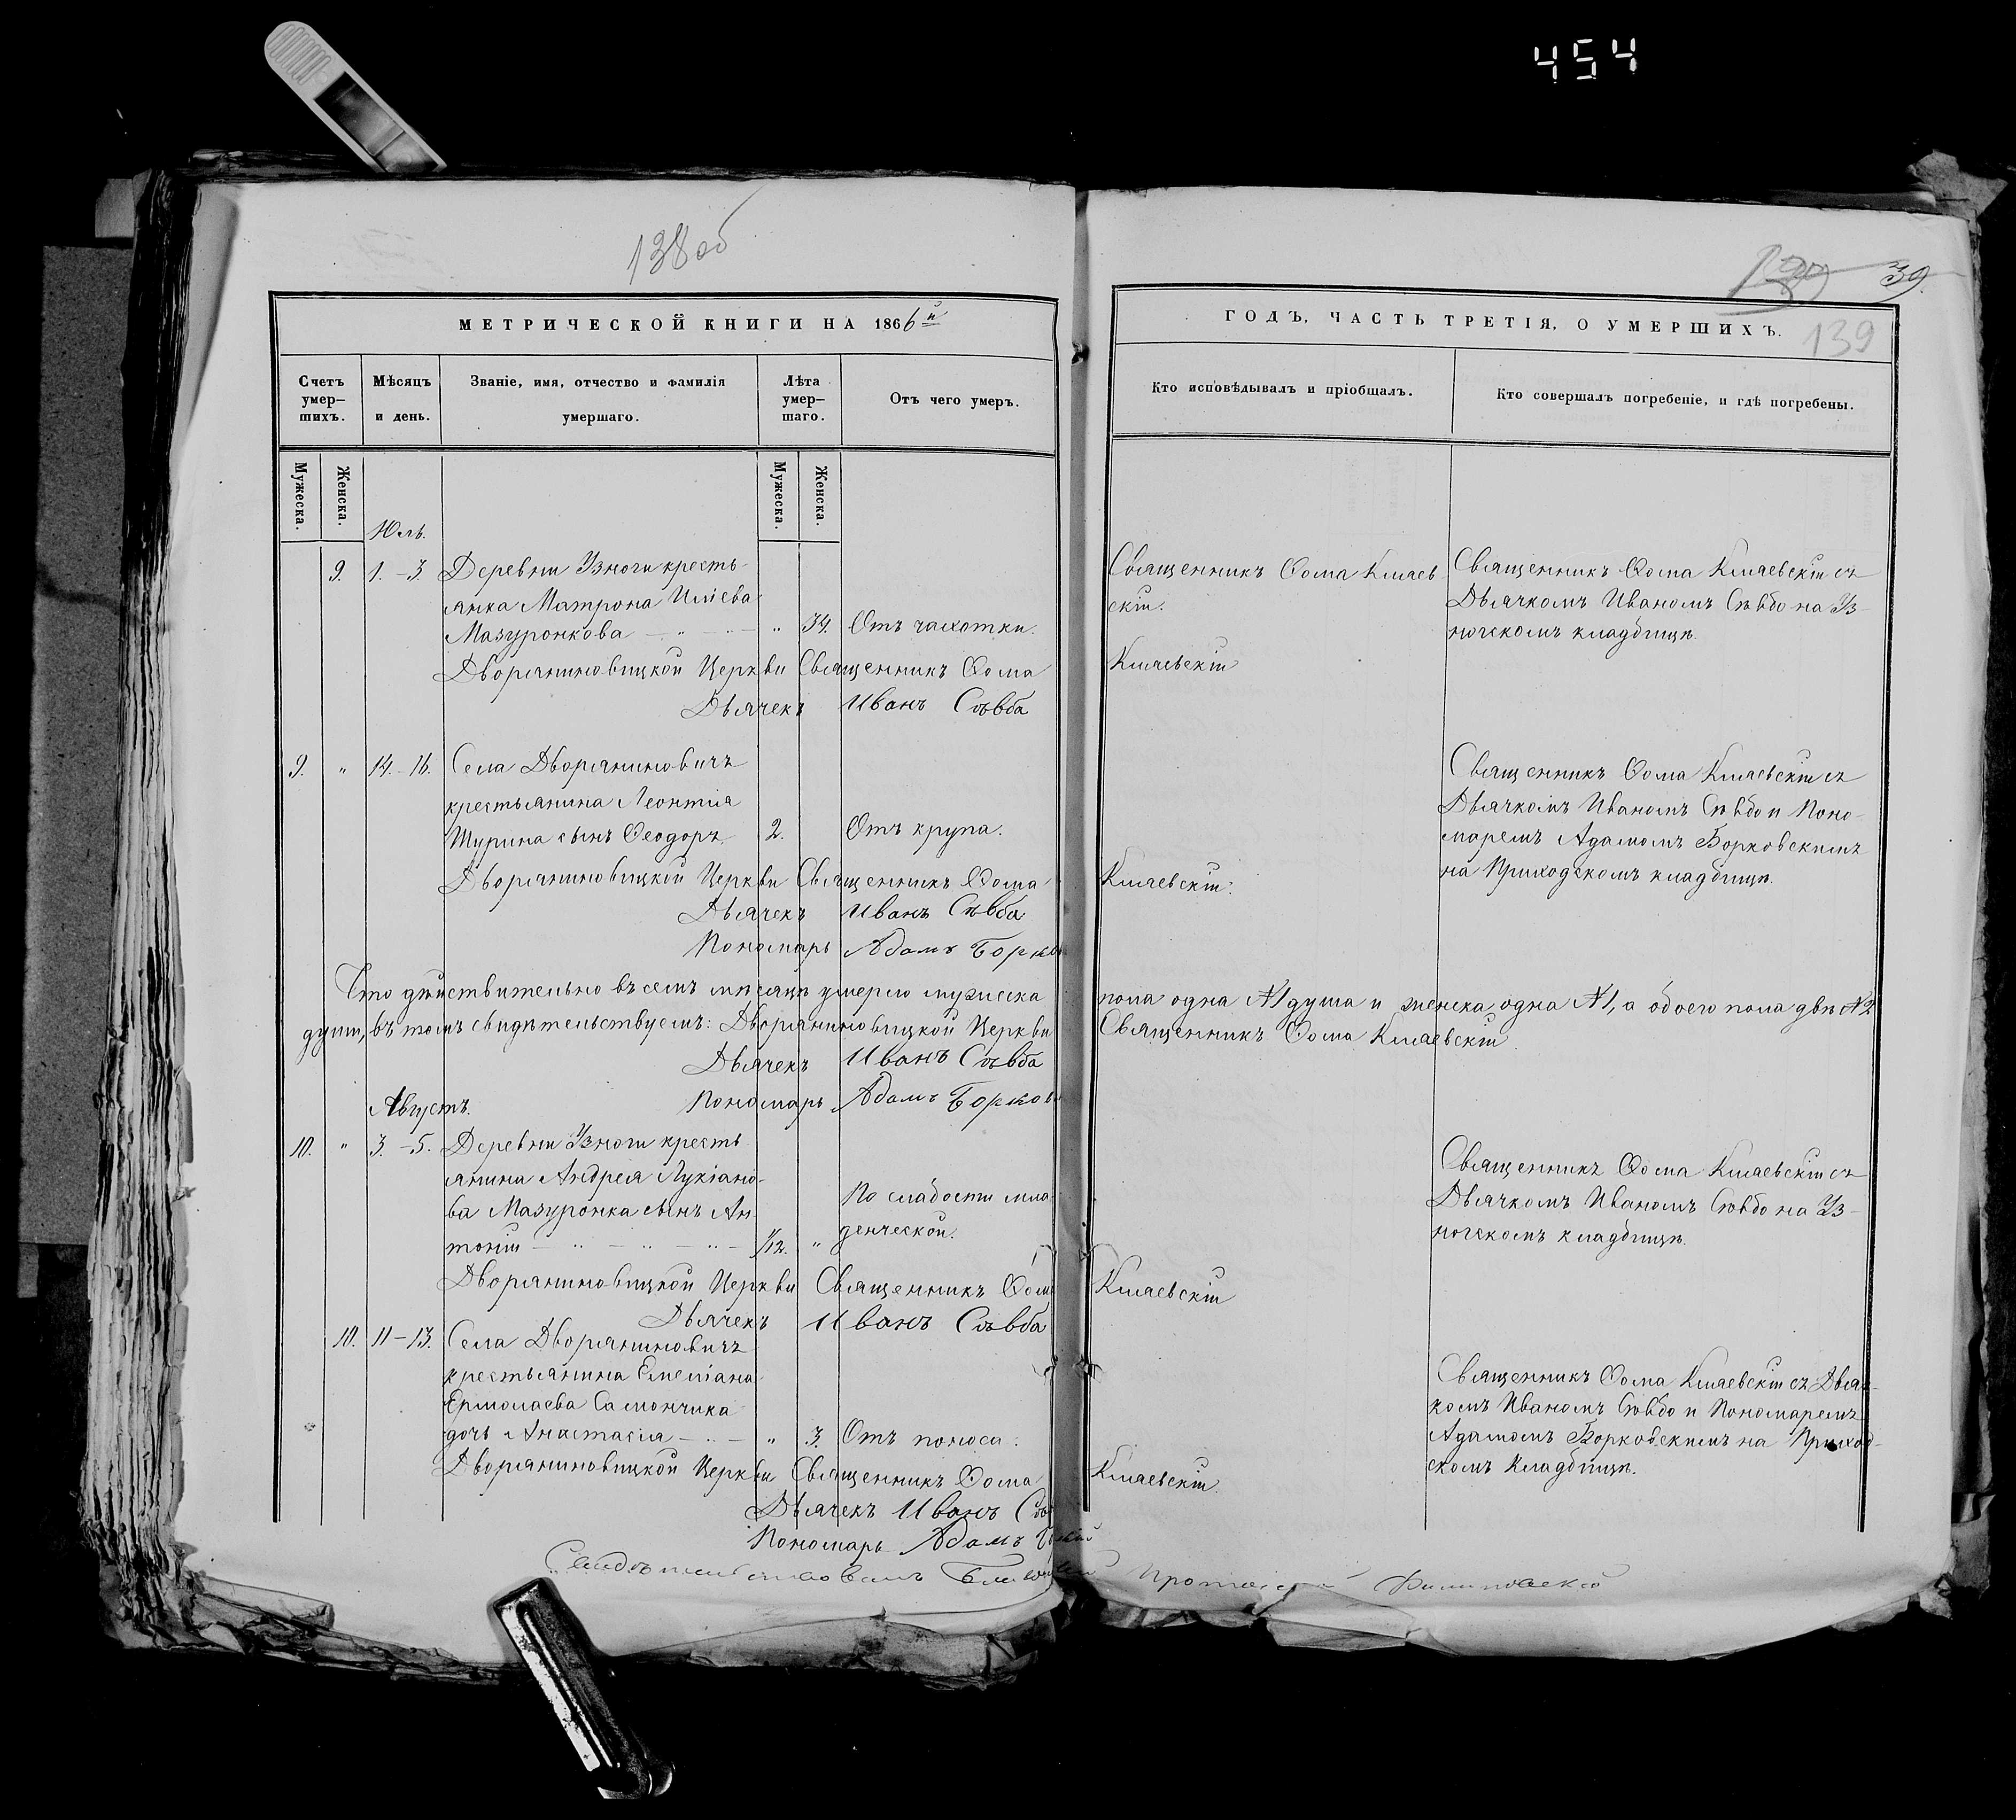 454
138об
39.
139
МЕТРИЧЕСКОЙ КНИГИ НА 1866й
ГОДЪ, ЧАСТЬ ТРЕТІЯ, О УМЕРШИХЪ.
Счетъ умер-шихъ.
Мѣсяцъ и день.
Званіе, имя, отчество и фамилія умершаго.
Лѣта умер-шаго.
Отъ чего умеръ.
Кто исповѣдывалъ и пріобщалъ.
Кто совершалъ погребеніе, и гдѣ погребены.
Мужеска.
Женска.
Мужеска.
Женска.
Юль.
9. 1.-3. Деревни Узноги кресть-
янка Матрона Иліева
Мазуронкова - " - " - " 34. Отъ чахотки.
Священникъ Ѳома Клаев-
скій.
Священникъ Ѳома Клаевскій съ
Дьячкомъ Иваномъ Сѣвбо на Уз-
ногскомъ кладбищѣ.
Дворяниновицкой Церкви Священникъ Ѳома Клаевскій
Дьячекъ Иванъ Сѣвба
9. " 14.-16. Села Дворяниновичъ
крестьянина Леонтія
Шурина сынъ Ѳеодоръ. 2. Отъ крупа.
Священникъ Ѳома Клаевскій съ
Дьячкомъ Иваномъ Сѣвбо и Поно-
маремъ Адамомъ Борковскимъ
на Приходскомъ кладбищѣ.
Дворяниновицкой Церкви Священникъ Ѳома Клаевскій.
Дьячекъ Иванъ Сѣвба
Пономарь Адамъ
Что дѣйствительно въ семъ мѣсяцѣ умерло мужеска пола одна №1 душа и женска одна №1, а обоего пола двѣ №2
души, въ томъ свидѣтельствуемъ: Дворяниновицкой Церкви Священникъ Ѳома Клаевскій
Дьячекъ Иванъ Сѣвба
Пономарь Адамъ
Августъ.
10. " 3.-5. Деревни Узноги кресть-
янина Андрея Лукіано-
ва Мазуронка сынъ Ан-
тоній - " - " - " - 1/12. "
По слабости мла-
денческой.
Священникъ Ѳома Клаевскій съ
Дьячкомъ Иваномъ Сѣвбо на Уз-
ногскомъ кладбищѣ.
Дворяниновицкой Церкви Священникъ Ѳома Клаевскій
Дьячекъ Иванъ Сѣвба
10. 11-13. Села Дворяниновичъ
крестьянина Емеліана
Ермолаева Самончика
дочь Анастасія - " - " 3. Отъ поноса.
Священникъ Ѳома Клаевскій съ Дьяч-
комъ Иваномъ Сѣвбо и Пономаремъ
Адамомъ Борковскимъ на Приход-
скомъ кладбищѣ.
Дворяниновицкой Церкви Священникъ Ѳома Клаевскій.
Дьячекъ Иванъ
Пономарь Адамъ
Свидѣтельствовалъ